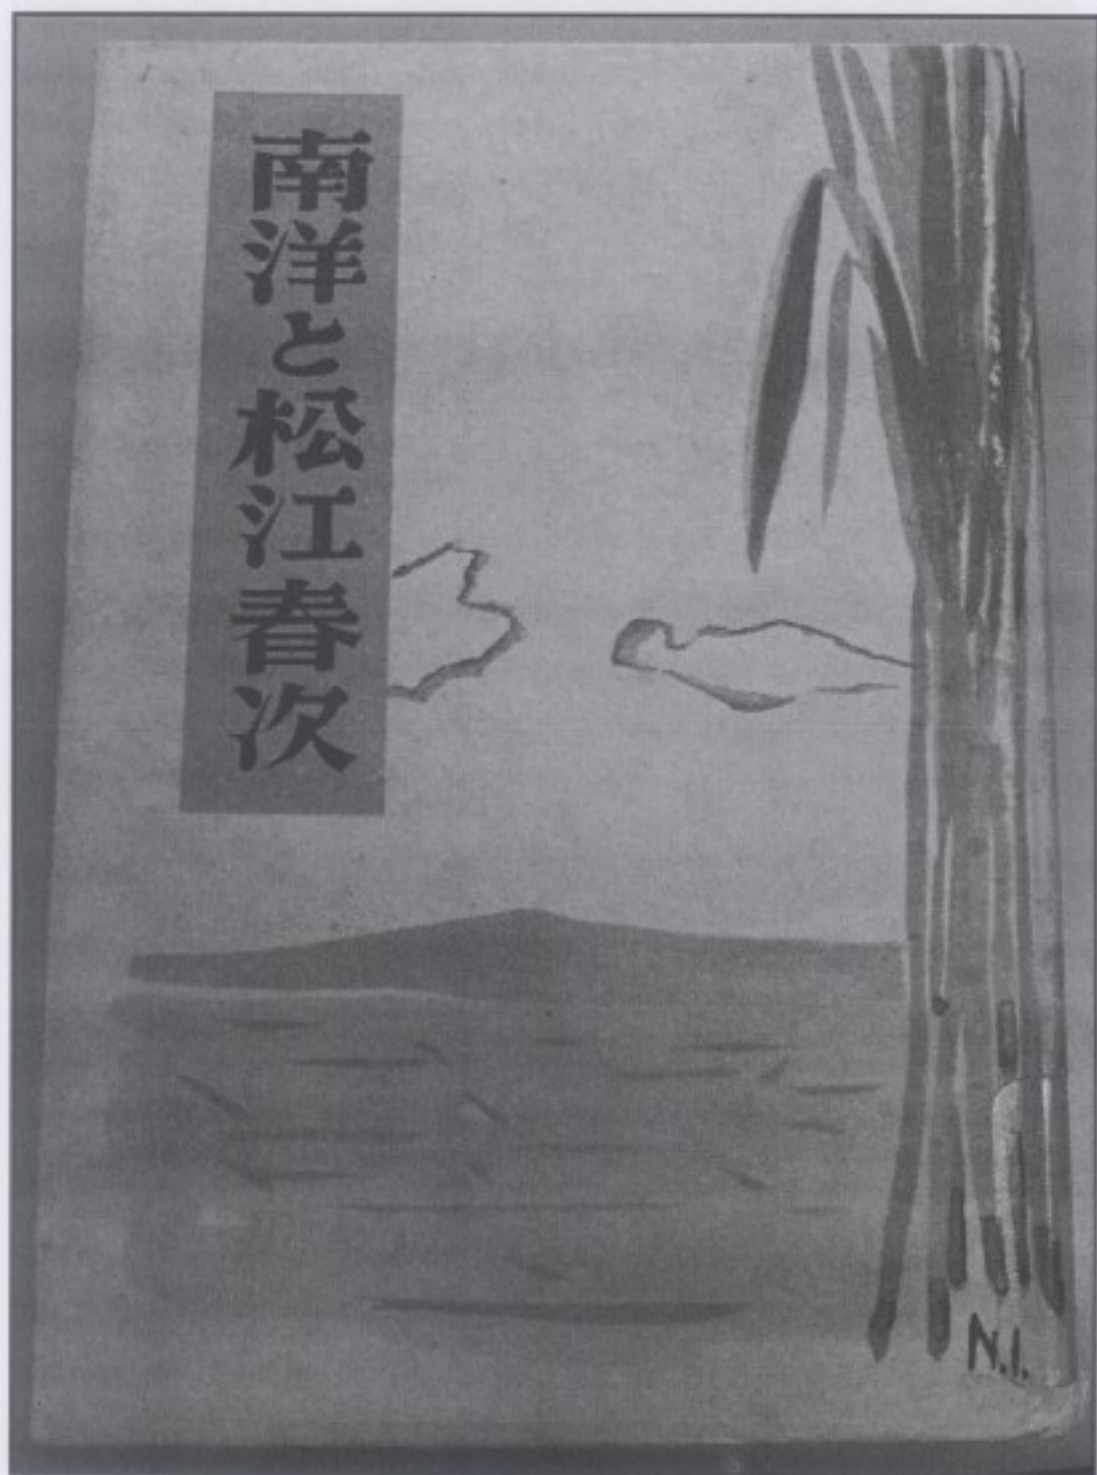 南洋と松江春次
N.I.